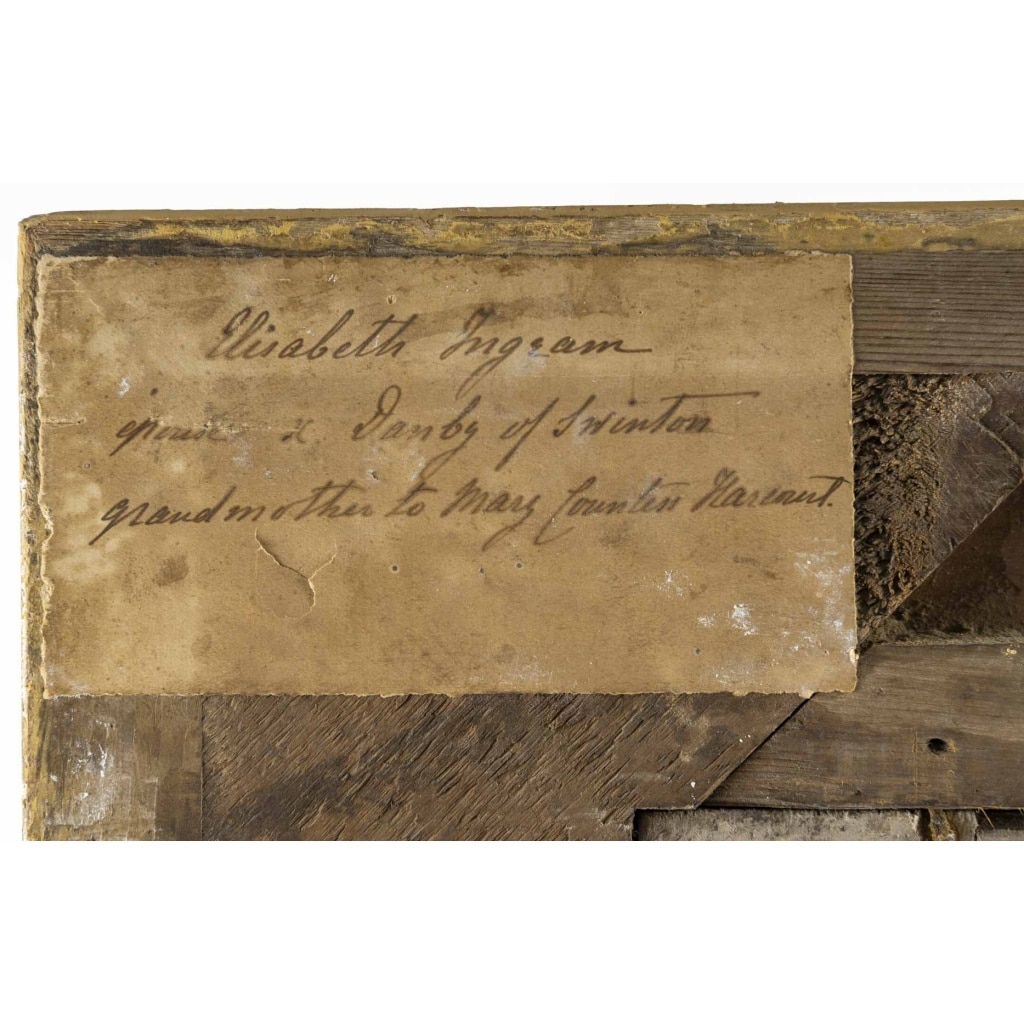 Elisabeth Ingram
spouse Danby of Swinton
grandmother to Mary Countess Harcourt.